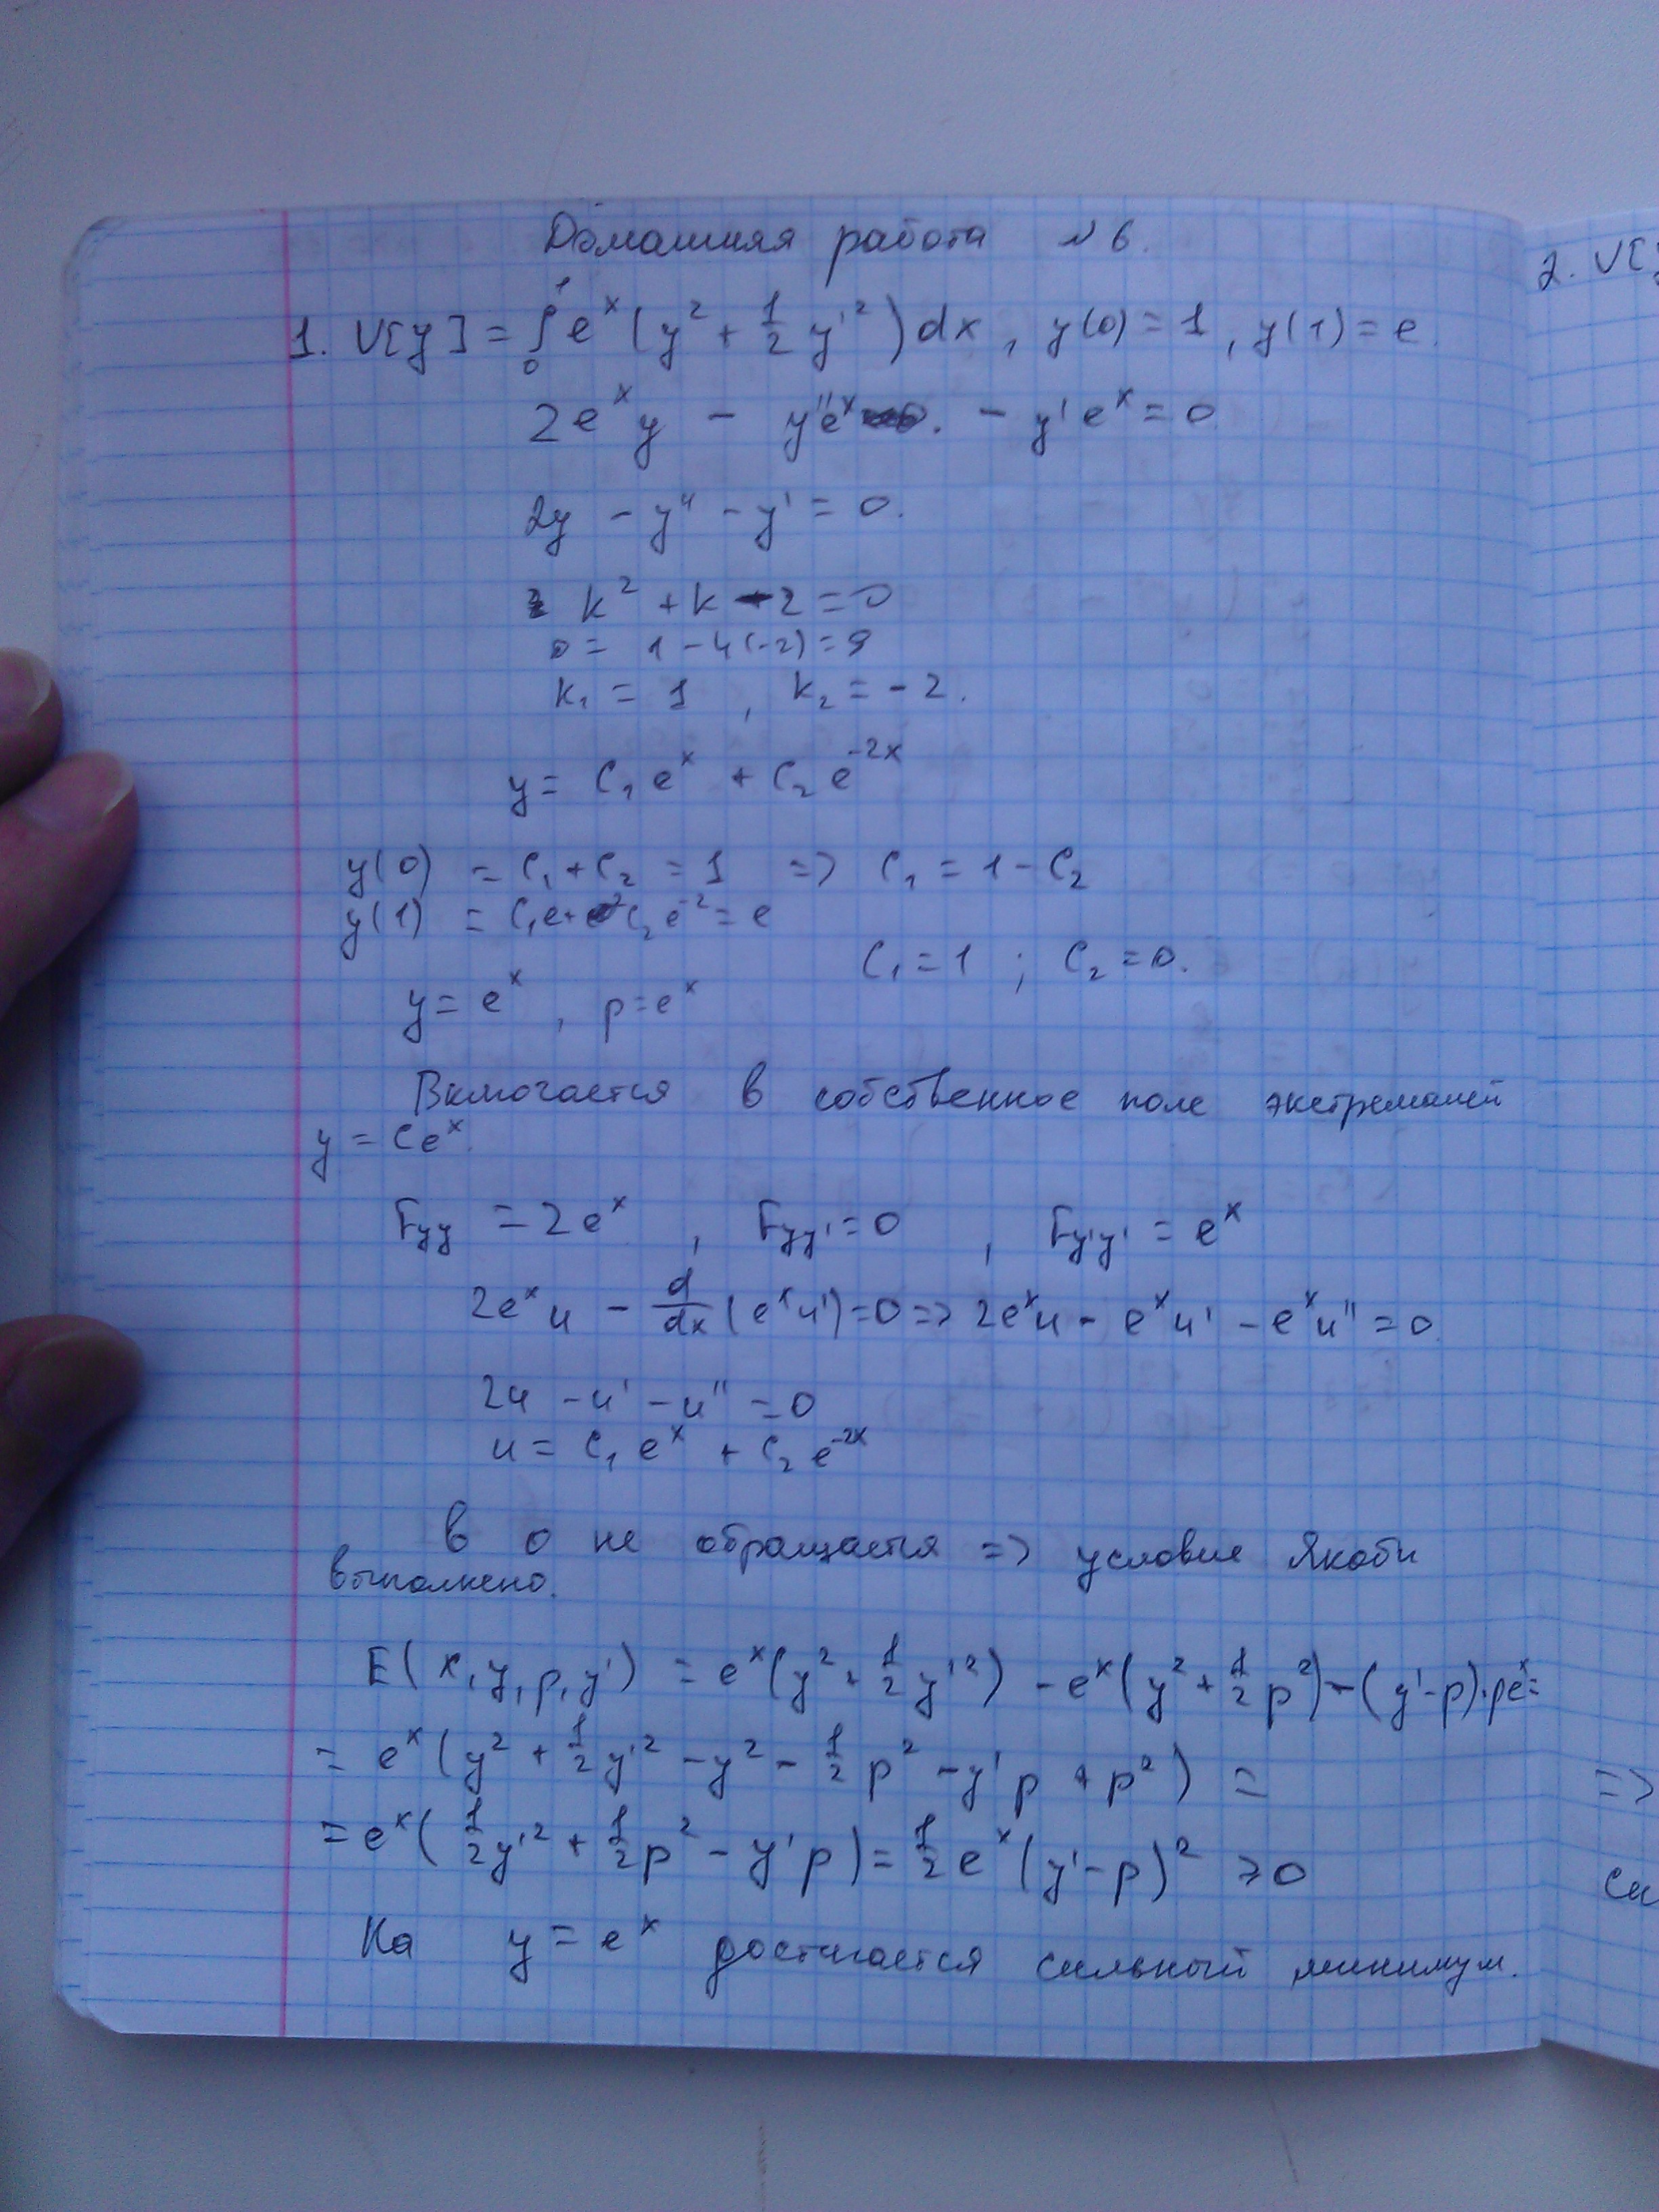 Домашняя работа №6.
1. V[y] = ∫₀¹ eˣ(y² + 1/2 y'²)dx, y(0) = 1, y(1) = e.
2eˣy - y''eˣ - y'eˣ = 0
2y - y'' - y' = 0.
k² + k - 2 = 0
D = 1 - 4(-2) = 9
k₁ = 1, k₂ = -2.
y = C₁eˣ + C₂e⁻²ˣ
y(0) = C₁ + C₂ = 1 => C₁ = 1 - C₂
y(1) = C₁e + C₂e⁻² = e
C₁ = 1; C₂ = 0.
y = eˣ, p = eˣ
Включается в собственное поле экстремалей
y = Ceˣ.
Fyy = 2eˣ, Fyy' = 0, Fy'y' = eˣ
2eˣu - d/dx(eˣu') = 0 => 2eˣu - eˣu' - eˣu'' = 0.
2u - u' - u'' = 0
u = C₁eˣ + C₂e⁻²ˣ
в 0 не обращается => условие Якоби
выполнено.
E(x, y, p, y') = eˣ(y² + 1/2 y'²) - eˣ(y² + 1/2 p²) - (y' - p)·peˣ =
= eˣ(y² + 1/2 y'² - y² - 1/2 p² - y'p + p²) =
= eˣ(1/2 y'² + 1/2 p² - y'p) = 1/2 eˣ(y' - p)² ≥ 0
На y = eˣ достигается сильный минимум.
2. V[y
=>
си